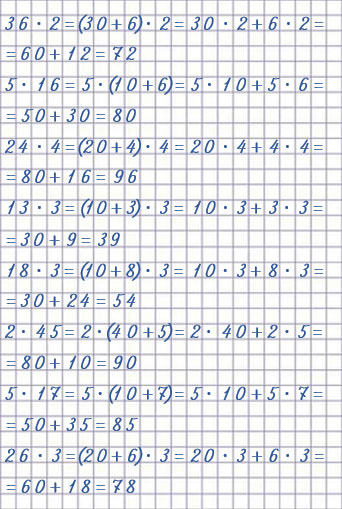 36 · 2 = (30 + 6) · 2 = 30 · 2 + 6 · 2 =
= 60 + 12 = 72
5 · 16 = 5 · (10 + 6) = 5 · 10 + 5 · 6 =
= 50 + 30 = 80
24 · 4 = (20 + 4) · 4 = 20 · 4 + 4 · 4 =
= 80 + 16 = 96
13 · 3 = (10 + 3) · 3 = 10 · 3 + 3 · 3 =
= 30 + 9 = 39
18 · 3 = (10 + 8) · 3 = 10 · 3 + 8 · 3 =
= 30 + 24 = 54
2 · 45 = 2 · (40 + 5) = 2 · 40 + 2 · 5 =
= 80 + 10 = 90
5 · 17 = 5 · (10 + 7) = 5 · 10 + 5 · 7 =
= 50 + 35 = 85
26 · 3 = (20 + 6) · 3 = 20 · 3 + 6 · 3 =
= 60 + 18 = 78